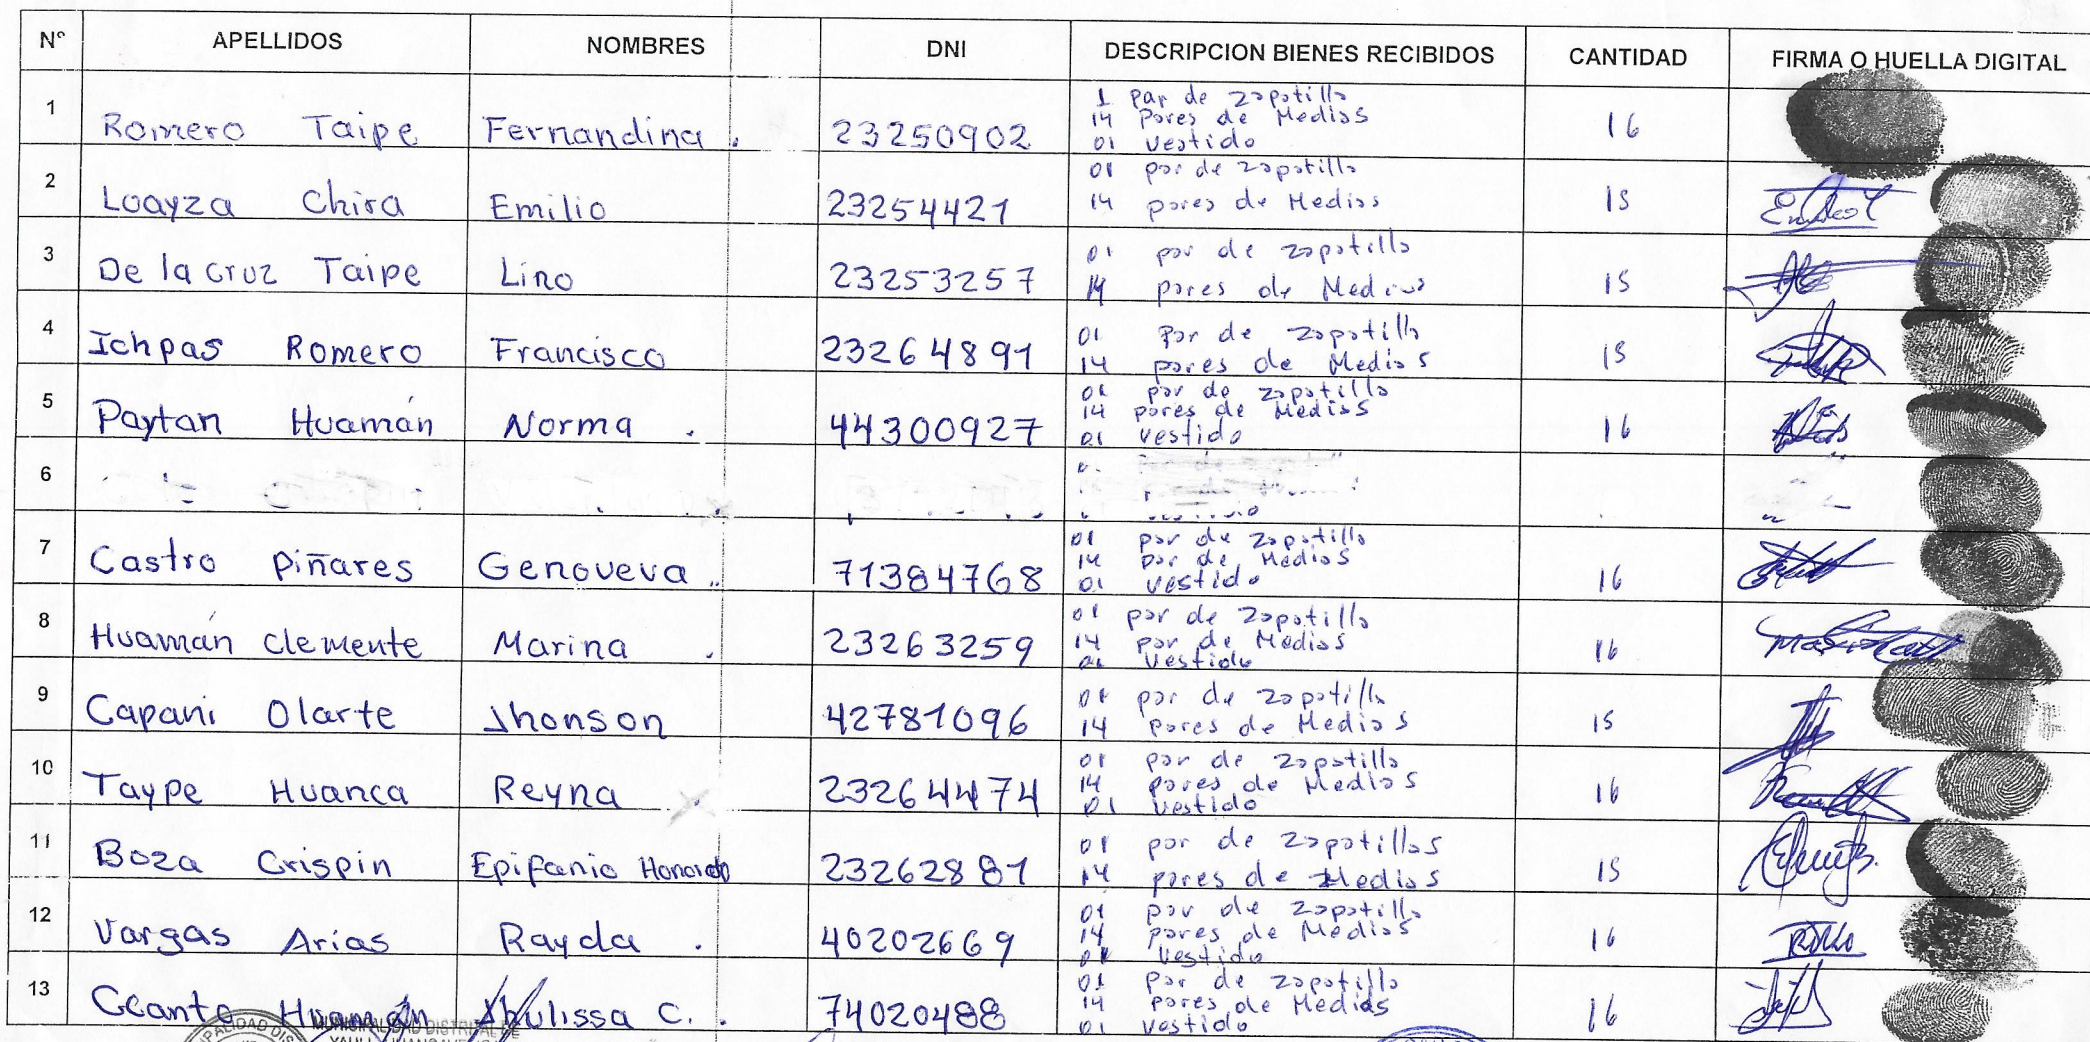 N° APELLIDOS NOMBRES DNI DESCRIPCION BIENES RECIBIDOS CANTIDAD FIRMA O HUELLA DIGITAL
1 Romero Taipe Fernandina. 23250902 1 par de zapatilla 16
14 Pares de Medias
01 vestido
2 Loayza Chira Emilio 23254421 01 par de zapatilla 15
14 pares de Medias
3 De la cruz Taipe Lino 23253257 01 par de zapatilla 15
14 pares de Medias
4 Ichpas Romero Francisco 23264891 01 Par de zapatilla 15
14 pares de Medias
5 Paytan Huamán Norma. 44300927 01 par de zapatilla 16
14 pares de Medias
01 vestido
6
7 Castro Piñares Genoveva.. 71384768 01 par de zapatilla 16
14 par de Medias
01 vestido
8 Huamán Clemente Marina. 23263259 01 par de zapatilla 16
14 par de Medias
01 vestido
9 Capani Olarte Jhonson 42781096 01 par de zapatilla 15
14 Pares de Medias
10 Taype Huanca Reyna. 23264474 01 par de zapatilla 16
14 pares de Medias
01 vestido
11 Boza Crispin Epifanio Honorato 23262881 01 par de zapatillas 15
14 pares de Medias
12 Vargas Arias Rayda. 40202669 01 par de zapatilla 16
14 pares de Medias
01 vestido
13 Ccanto Huamán Jhulissa C.. 74020488 01 Par de zapatilla 16
14 Pares de Medias
01 vestido
MUNICIPALIDAD DISTRITAL DE